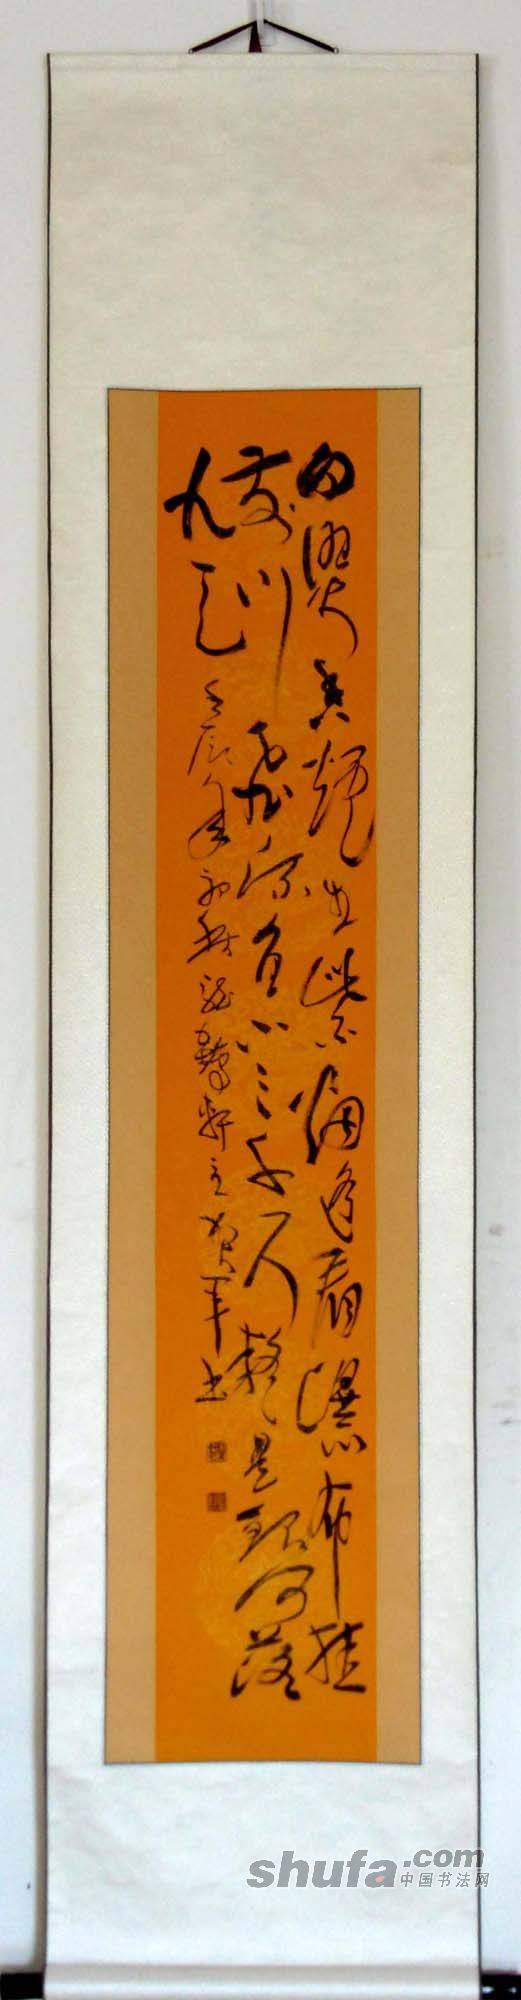 日照香炉生紫烟遥看瀑布挂
前川飞流直下三千尺疑是银河落
九天
壬辰年初秋龙书轩主贺军书
shufa.com
中国书法网